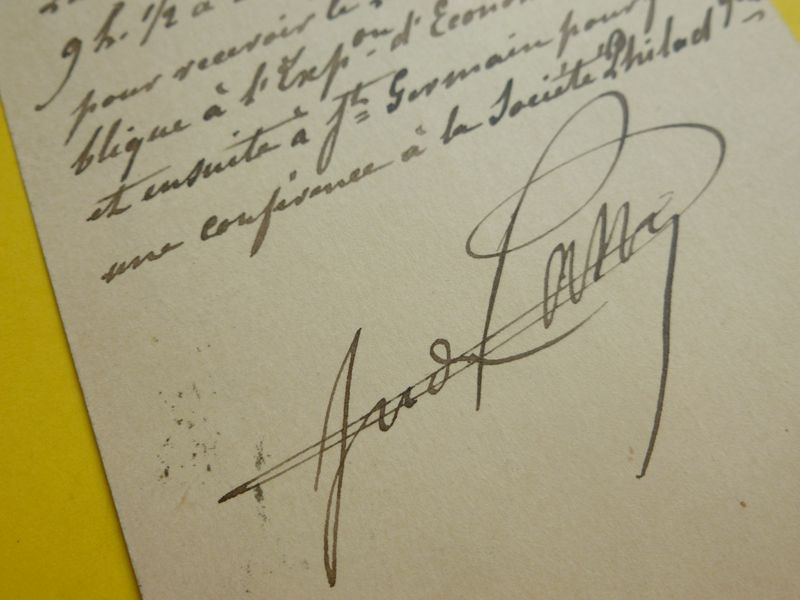 9 h. 1/2 à
pour recevoir le
blique à l'Exp.on d'Econo
et ensuite à St Germain pour
une conférence à la Société Philad